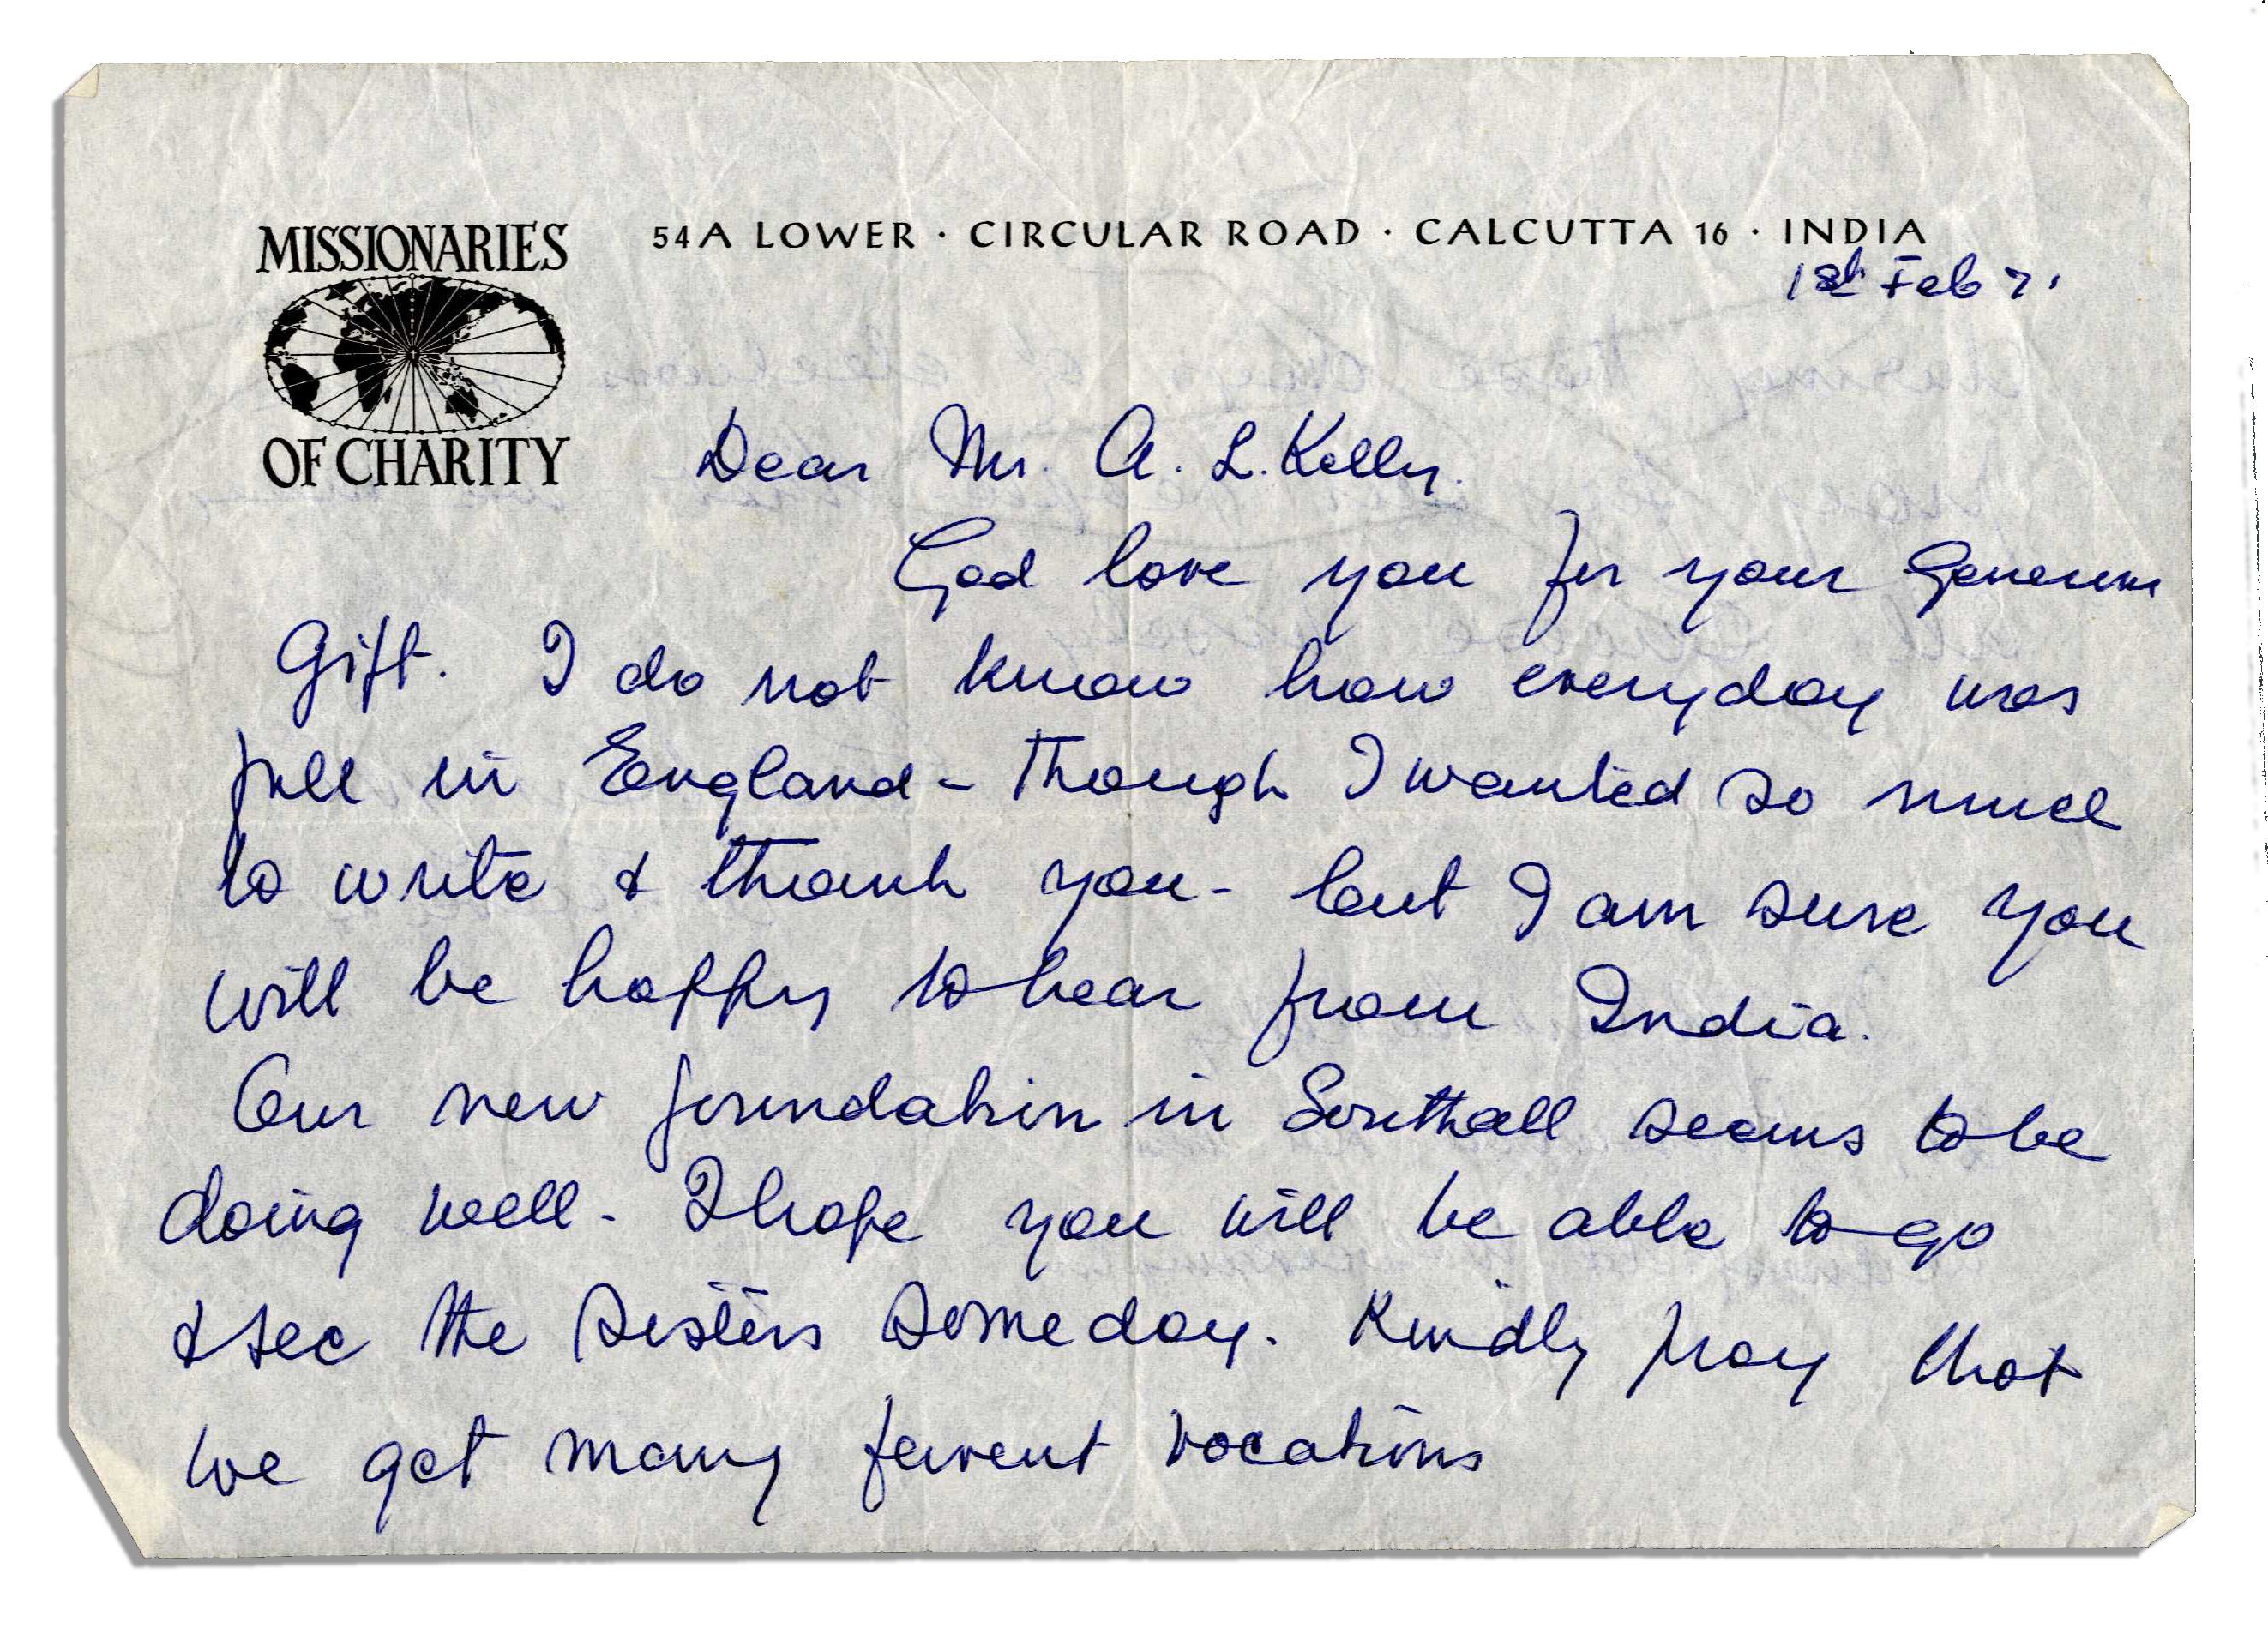 MISSIONARIES
OF CHARITY
54A LOWER · CIRCULAR ROAD · CALCUTTA 16 · INDIA
18th Feb 71
Dear Mr. A. L. Kelly.
God love you for your Generous
Gift. I do not know how everyday was
full in England - Though I wanted so much
to write & thank you - but I am sure you
will be happy to hear from India.
Our new foundation in Southall seems to be
doing well - I hope you will be able to go
& see the Sisters some day. Kindly pray that
we get many fervent vocations